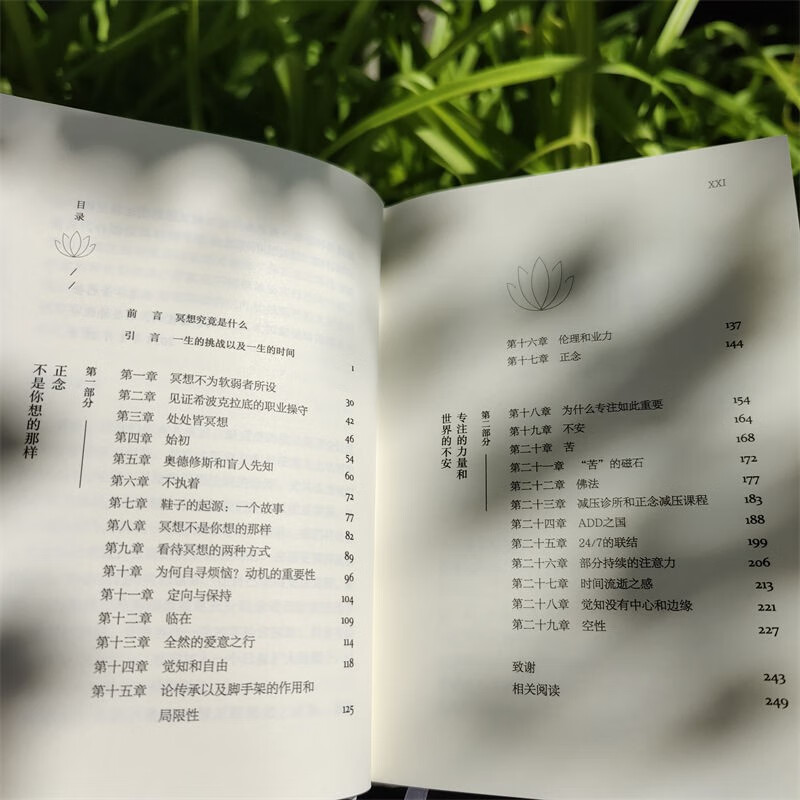 目录
前 言 冥想究竟是什么
引 言 一生的挑战以及一生的时间 1
第一部分
正念
不是你想的那样
第一章 冥想不为软弱者所设 30
第二章 见证希波克拉底的职业操守 42
第三章 处处皆冥想 46
第四章 始初 54
第五章 奥德修斯和盲人先知 60
第六章 不执着 72
第七章 鞋子的起源：一个故事 77
第八章 冥想不是你想的那样 82
第九章 看待冥想的两种方式 89
第十章 为何自寻烦恼？动机的重要性 96
第十一章 定向与保持 104
第十二章 临在 109
第十三章 全然的爱意之行 114
第十四章 觉知和自由 118
第十五章 论传承以及脚手架的作用和
局限性 125
XXI
第十六章 伦理和业力 137
第十七章 正念 144
第二部分
专注的力量和
世界的不安
第十八章 为什么专注如此重要 154
第十九章 不安 164
第二十章 苦 168
第二十一章 “苦”的磁石 172
第二十二章 佛法 177
第二十三章 减压诊所和正念减压课程 183
第二十四章 ADD之国 188
第二十五章 24/7的联结 199
第二十六章 部分持续的注意力 206
第二十七章 时间流逝之感 213
第二十八章 觉知没有中心和边缘 221
第二十九章 空性 227
致谢 243
相关阅读 249